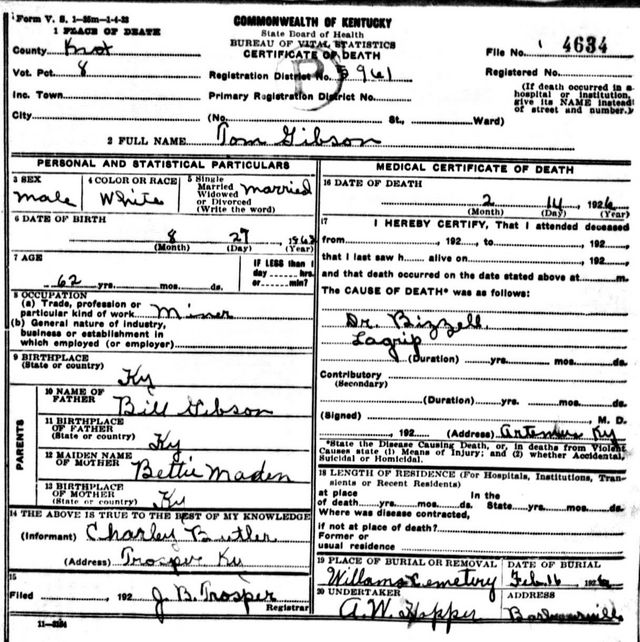 Form V. S. 1-35m-1-4-23
COMMONWEALTH OF KENTUCKY
State Board of Health
BUREAU OF VITAL STATISTICS
CERTIFICATE OF DEATH
1 PLACE OF DEATH
County Knox
File No. 4634
Vot. Pct. 8
Registration District No. 961
Registered No.
Inc. Town
Primary Registration District No.
(If death occurred in a hospital or institution, give its NAME instead of street and number.)
City (No. St., Ward)
2 FULL NAME Tom Gibson
PERSONAL AND STATISTICAL PARTICULARS
3 SEX Male
4 COLOR OR RACE White
5 Single Married Widowed or Divorced (Write the word) Married
6 DATE OF BIRTH
8 27 1863
(Month) (Day) (Year)
7 AGE
62 yrs. mos. ds.
IF LESS than 1 day hrs. or min?
8 OCCUPATION
(a) Trade, profession or particular kind of work Miner
(b) General nature of industry, business or establishment in which employed (or employer)
9 BIRTHPLACE
(State or country) Ky
PARENTS
10 NAME OF FATHER Bill Gibson
11 BIRTHPLACE OF FATHER
(State or country) Ky
12 MAIDEN NAME OF MOTHER Bettie Maden
13 BIRTHPLACE OF MOTHER
(State or country) Ky
14 THE ABOVE IS TRUE TO THE BEST OF MY KNOWLEDGE
(Informant) Charley Butler
(Address) Trosper Ky
15
Filed , 192 J. B. Trosper
Registrar
11-3184
MEDICAL CERTIFICATE OF DEATH
16 DATE OF DEATH
2 14 , 1926
(Month) (Day) (Year)
17 I HEREBY CERTIFY, That I attended deceased
from , 192 , to , 192 ,
that I last saw h alive on , 192 ,
and that death occurred on the date stated above at m.
The CAUSE OF DEATH* was as follows:
Dr. Bizzell
Lagrip
(Duration) yrs. mos. ds.
Contributory
(Secondary)
(Duration) yrs. mos. ds.
(Signed) M. D.
, 192 (Address) Artemus Ky
*State the Disease Causing Death, or, in deaths from Violent
Causes state (1) Means of Injury; and (2) whether Accidental,
Suicidal or Homicidal.
18 LENGTH OF RESIDENCE (For Hospitals, Institutions, Transients or Recent Residents)
at place of death yrs. mos. ds. In the State yrs. mos. ds.
Where was disease contracted,
if not at place of death?
Former or
usual residence
19 PLACE OF BURIAL OR REMOVAL Willams Cemetery
DATE OF BURIAL Feb. 16 1926
20 UNDERTAKER A. W. Hopper
ADDRESS Barbourville